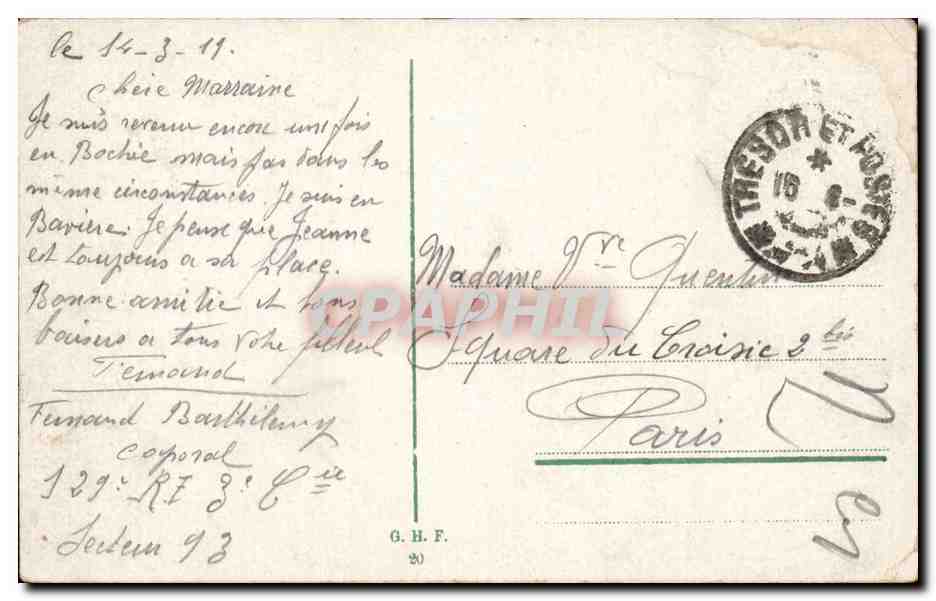 le 14-3-19.
Chère Marraine
Je suis revenu encore une fois
en Bochie mais pas dans les
même circonstances. Je suis en
Bavière. Je pense que Jeanne
est toujours a sa place.
Bonne amitie et bons
baisers a tous votre filleul
Fernand
Fernand Barthélemy
Caporal
129e RI 3e Cie
Secteur 93
TRESOR ET POSTES
*
16
Madame Vve Quentin
Square du Croisic 2 bis
Paris
CPAPHIL
G. H. F.
20